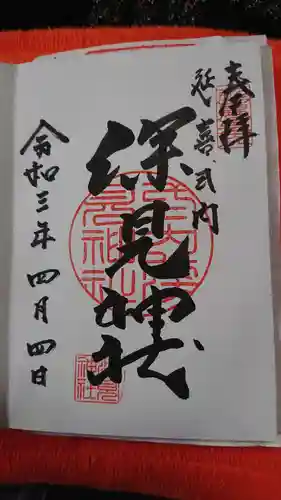 奉拝
延喜式内
深見神社
令和三年四月四日